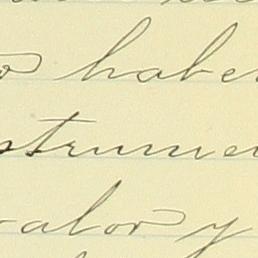 o haber
strume
valor y